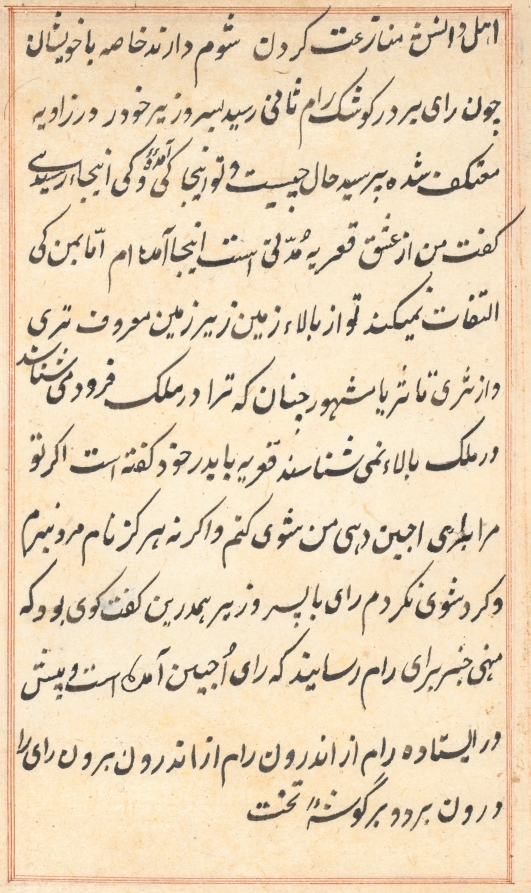 اهل دانش منازعت کردن شوم دارند خاصه با خویشان
چون رای بر در کوشک رام ثانی رسید پسر وزیر خود در زاویه
معتکف شده پرسید حال چیست و تو اینجا کی آمدۀ و کی اینجا رسیدے
کفت من از عشق قعریه مُدّتی است اینجا آمده ام امّا بمن کی
التفات نمیکند تو از بالاء زمین زیر زمین معروف تری
و از ثری تا ثریا مشهور چنان که ترا در ملک فرود می شناسند
در ملک بالاء نمی شناسند قعریه با پدر خود کفته است اکر تو
مرا برای اجین دهی من شوی کنم و اکر نه هرکز نام مرد نبرم
و کرد شوی نکردم رای با پسر وزیر همدرین کفت کوی بود که
منهی خبر برای رام رسانید که رای اُجین آمده است و پیش
در ایستاده رام از اندرون رام از اندرون برون رای را
درون برد و بر گوشۀ تخت